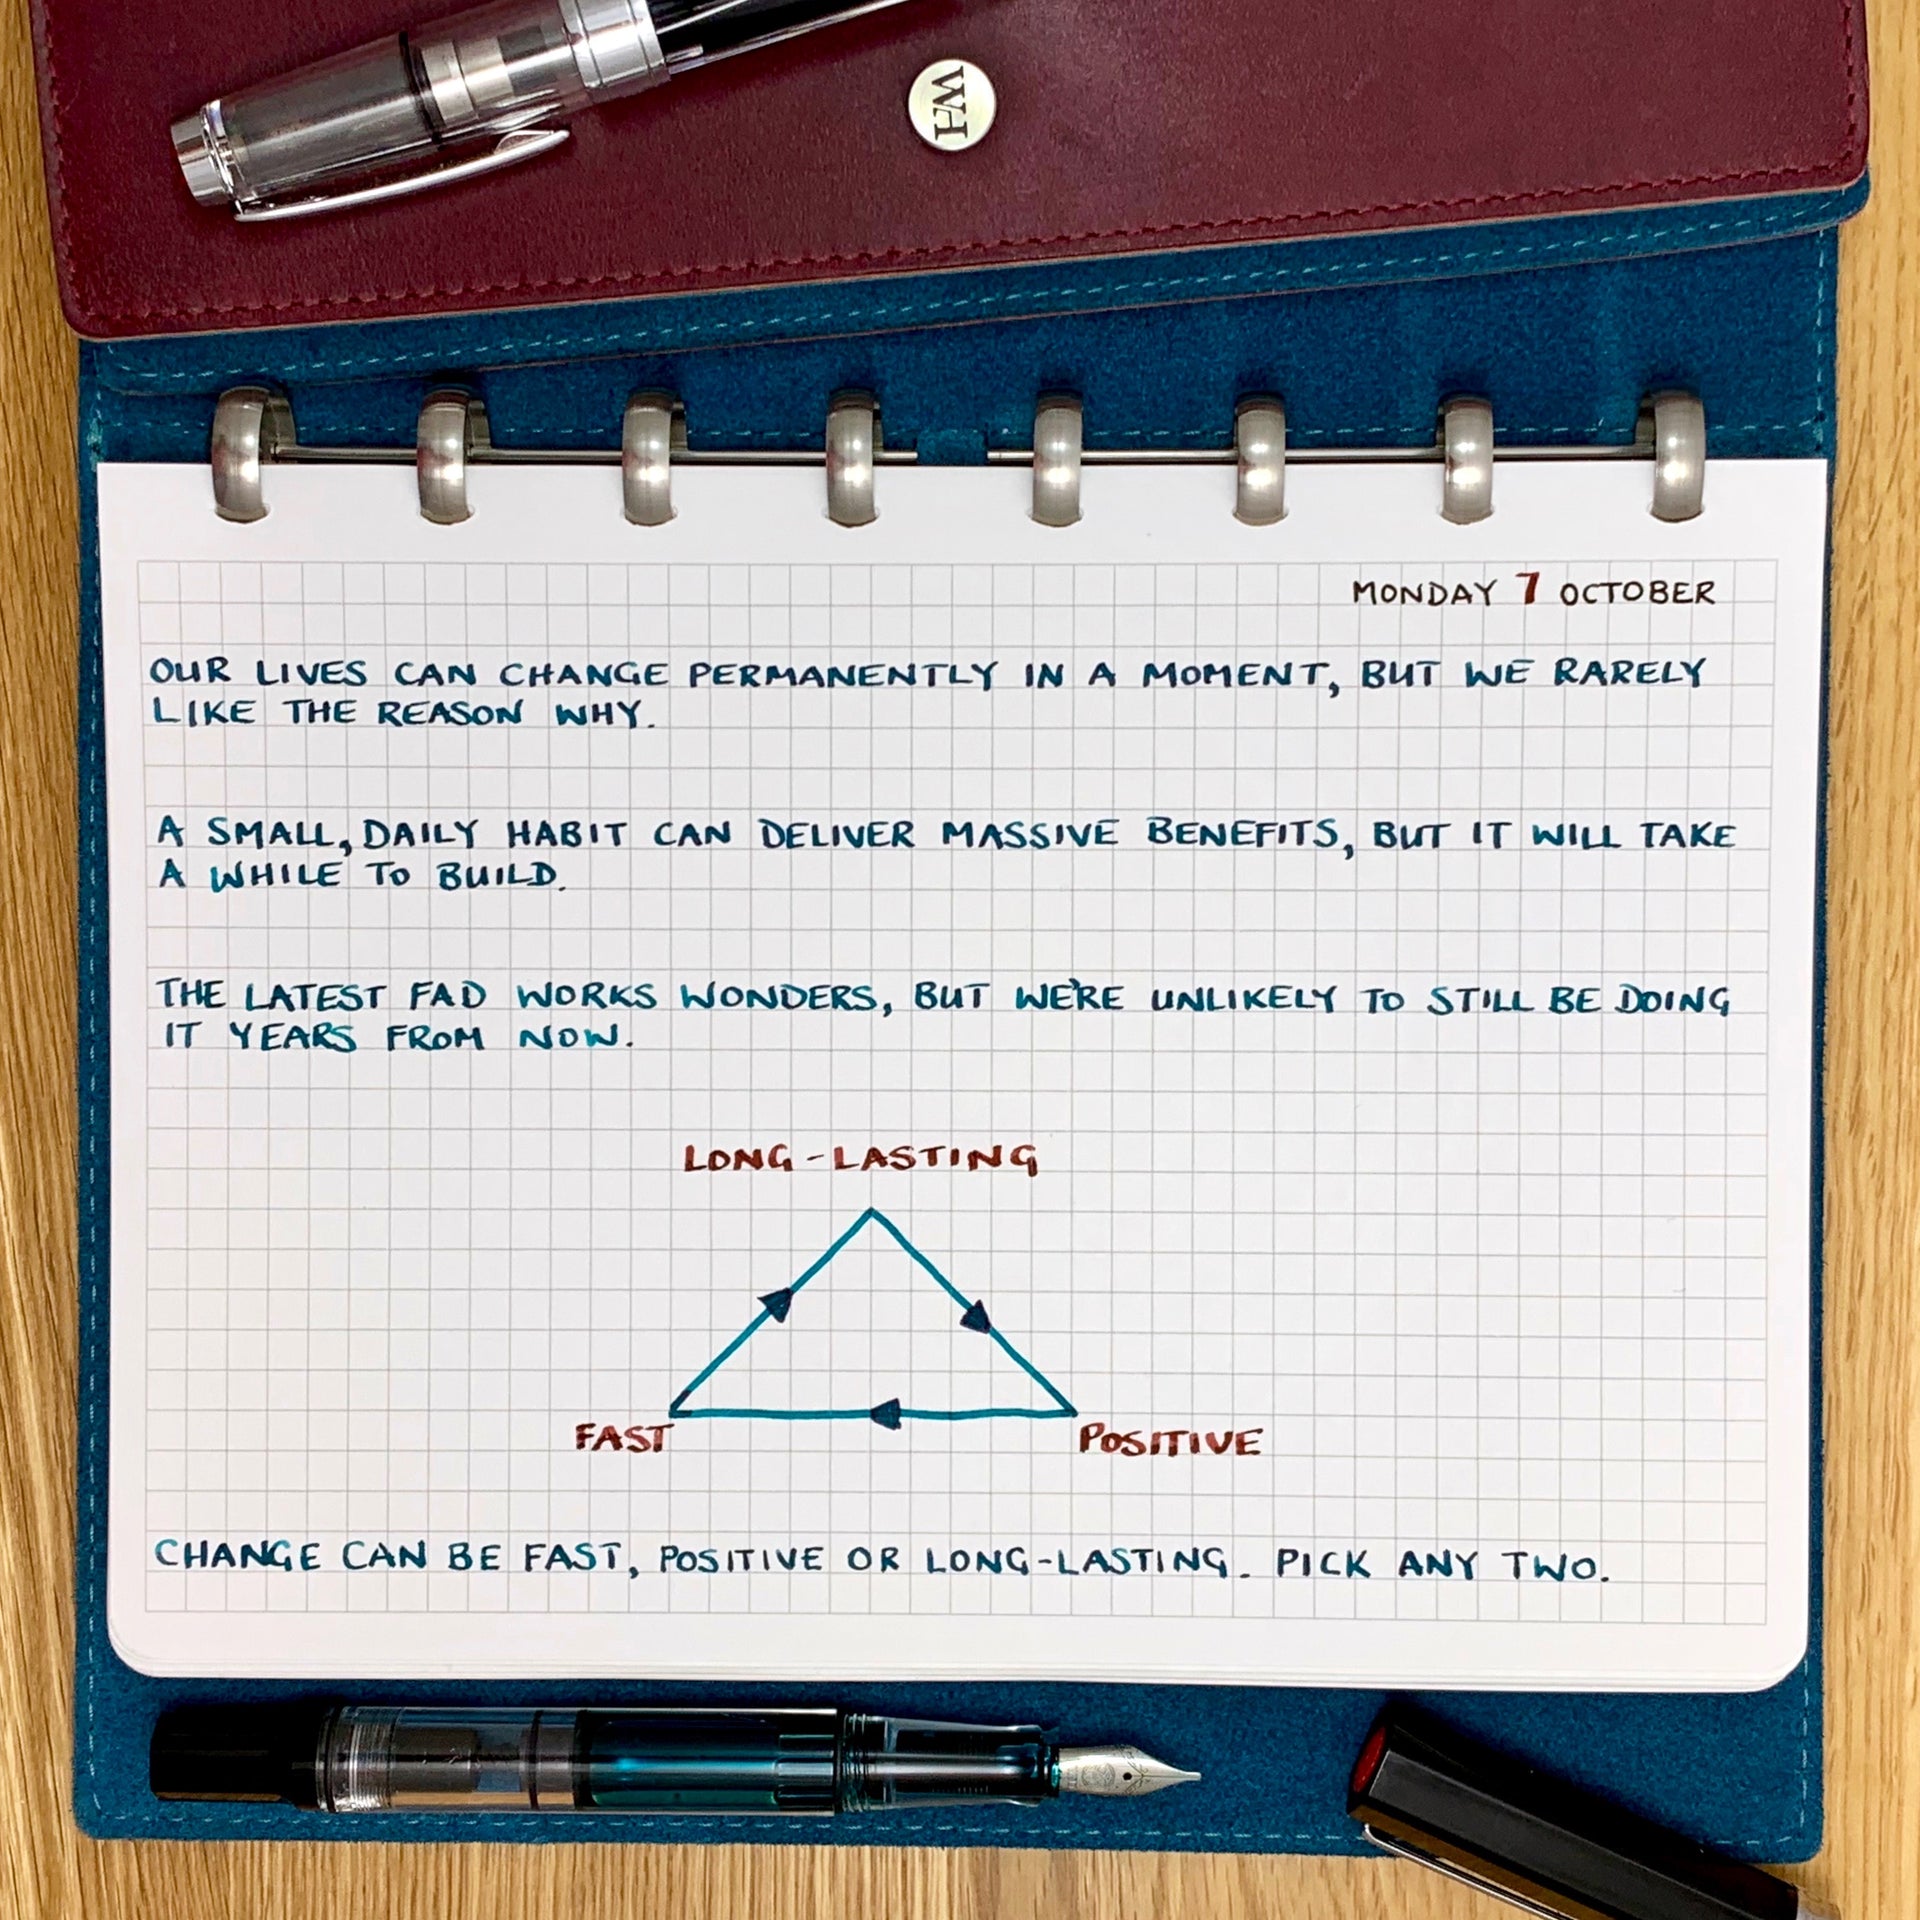 WH
MONDAY 7 OCTOBER
OUR LIVES CAN CHANGE PERMANENTLY IN A MOMENT, BUT WE RARELY
LIKE THE REASON WHY.
A SMALL, DAILY HABIT CAN DELIVER MASSIVE BENEFITS, BUT IT WILL TAKE
A WHILE TO BUILD.
THE LATEST FAD WORKS WONDERS, BUT WE'RE UNLIKELY TO STILL BE DOING
IT YEARS FROM NOW.
LONG-LASTING
FAST
POSITIVE
CHANGE CAN BE FAST, POSITIVE OR LONG-LASTING. PICK ANY TWO.